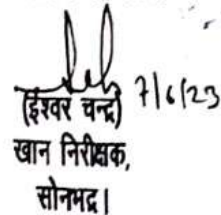 (ईश्वर चन्द्र) 7/6/23
खान निरीक्षक,
सोनभद्र।